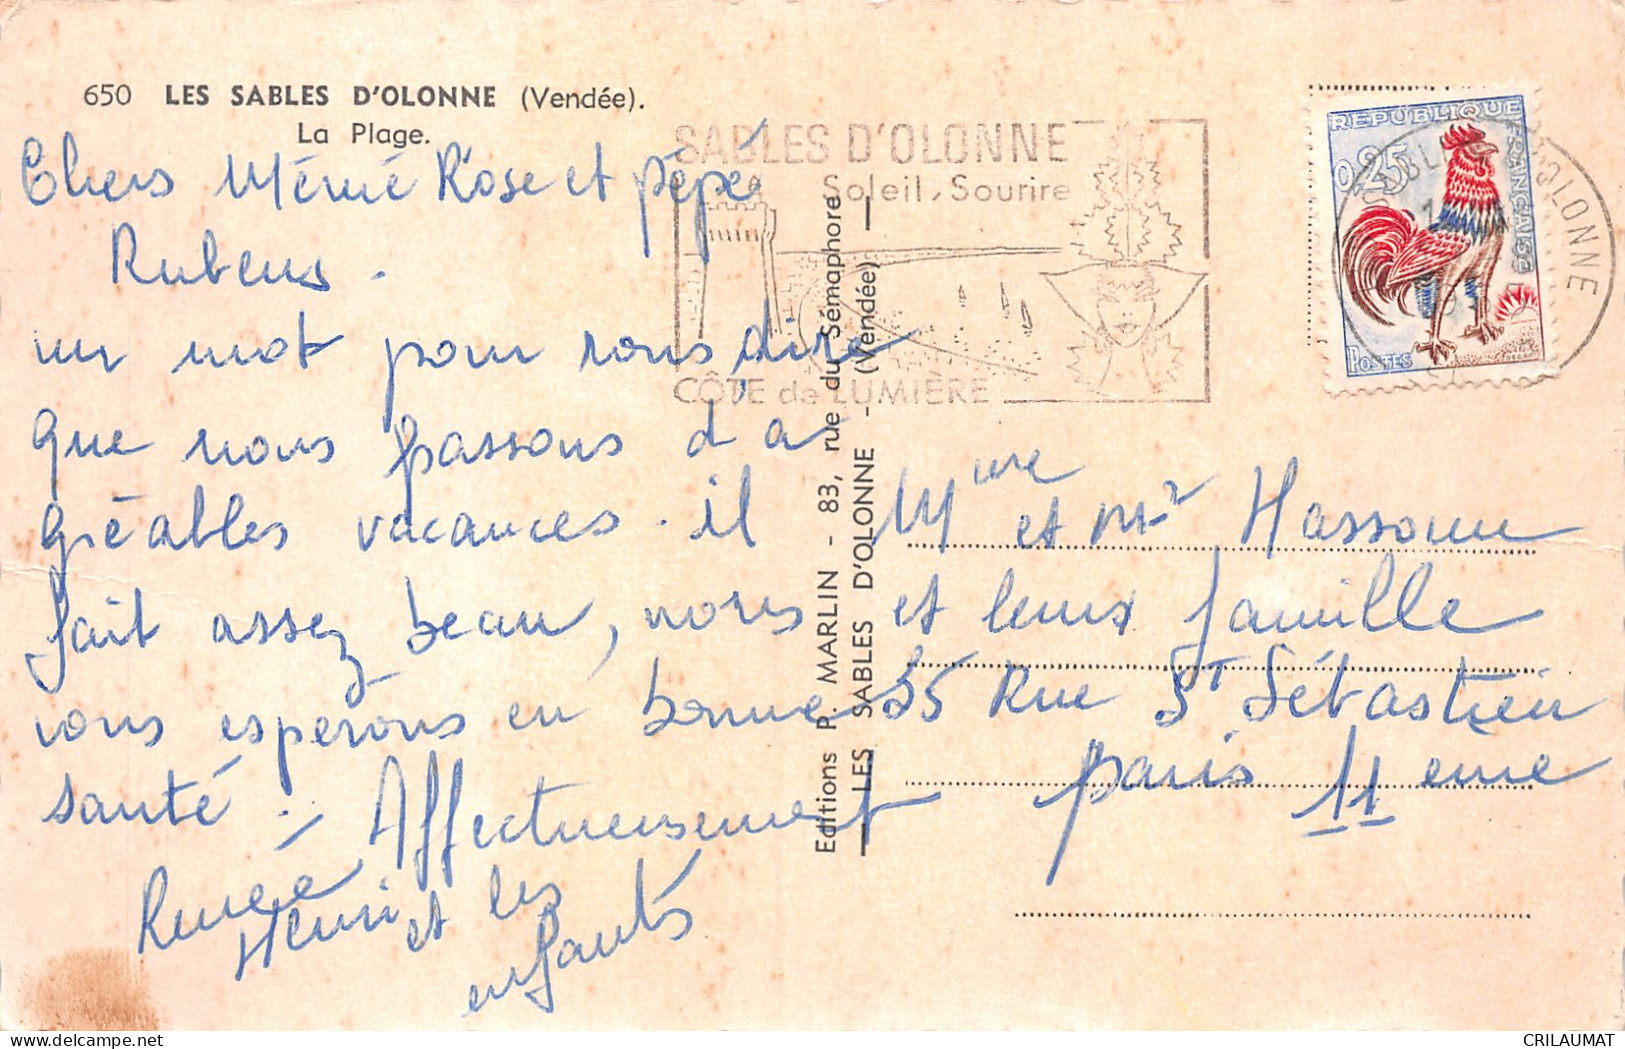 650 LES SABLES D'OLONNE (Vendée).
La Plage.
Chers Mémé Rose et pépé
Rubens.
un mot pour vous dire
que nous passons d'a
gréables vacances. il
fait assez beau, nous
vous esperons en bonne
santé. Affectueusement
Renée
Henri et les
enfants
SABLES D'OLONNE
Soleil, Sourire
CÔTE de LUMIÈRE
Editions P. MARLIN - 83, rue du Sémaphore
LES SABLES D'OLONNE - (Vendée)
REPUBLIQUE FRANÇAISE
0,25
POSTES
D'OLONNE
Mme et Mr Hassoun
et leurs famille
35 Rue St Sébastien
Paris 11 eme
CRILAUMAT